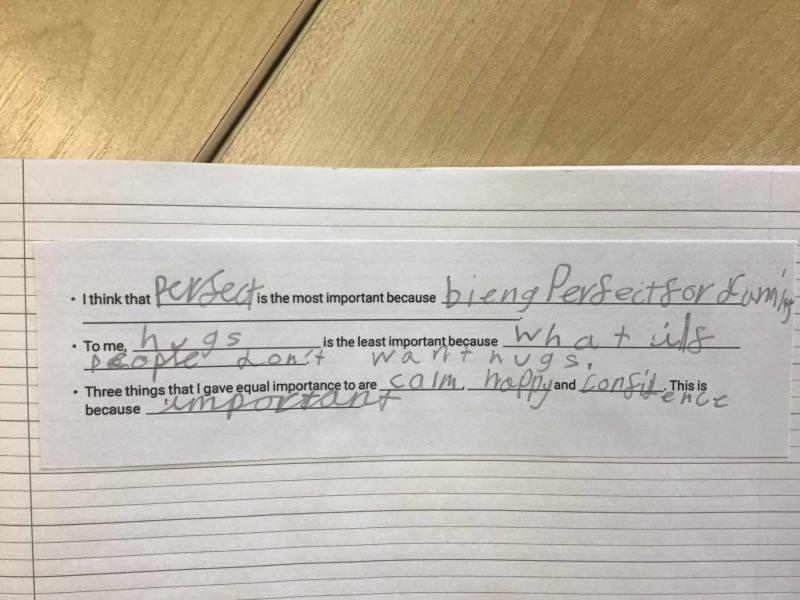 • I think that Perfect is the most important because bieng Perfect for family
• To me, hugs is the least important because what ifs
people don't want hugs.
• Three things that I gave equal importance to are calm, happy and confid. This is
ence
because important